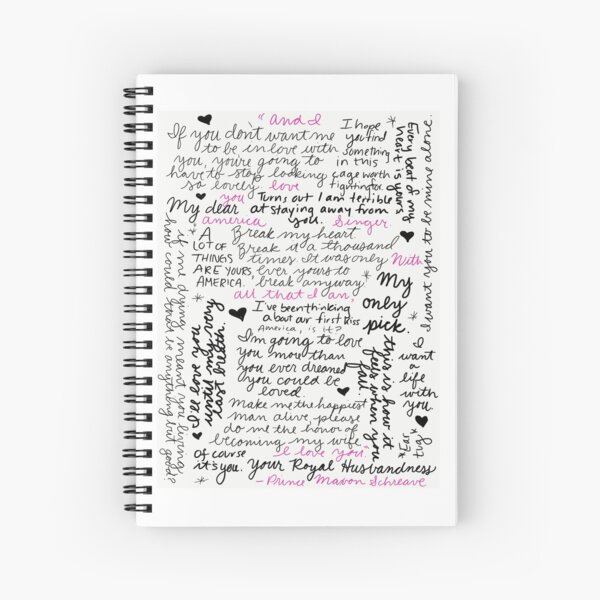 "and I
If you don't want me
to be in love with
you, you're going to
have to stop looking
so lovely.
love
I hope
you find
something
in this
cage worth
fighting for.
Every beat of my
heart is yours
I want you to be mine alone.
you
Turns out I am terrible
at staying away from
you.
My dear
america
Singer.
A
LOT OF
THINGS
ARE YOURS
AMERICA.
Break my heart.
Break it a thousand
times. It was only
ever yours to
break anyway.
With
all that I am"
My
only
pick.
I've been thinking
about our first kiss
America, is it?
I'm going to love
you more than
you ever dreamed
you could be
loved.
this is how it
feels when you
fall.
I
want
a life
with
you.
Ear
tug
I'll love you
until my very
last breath.
if my dying meant you living
how could it be anything but good?
Make me the happiest
man alive, please
do me the honor of
becoming my wife
Of course
it's you.
"I love you"
Your Royal Husbandness
- Prince Maxon Schreave